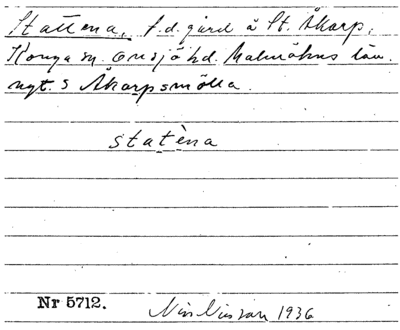 Stattena, f.d. gård å St. Åkarp,
Konga sn. Onsjö hd. Malmöhus län.
ngt. S Åkarpsmölla.
statèna
Nr 5712.
Nils Nilsson 1936